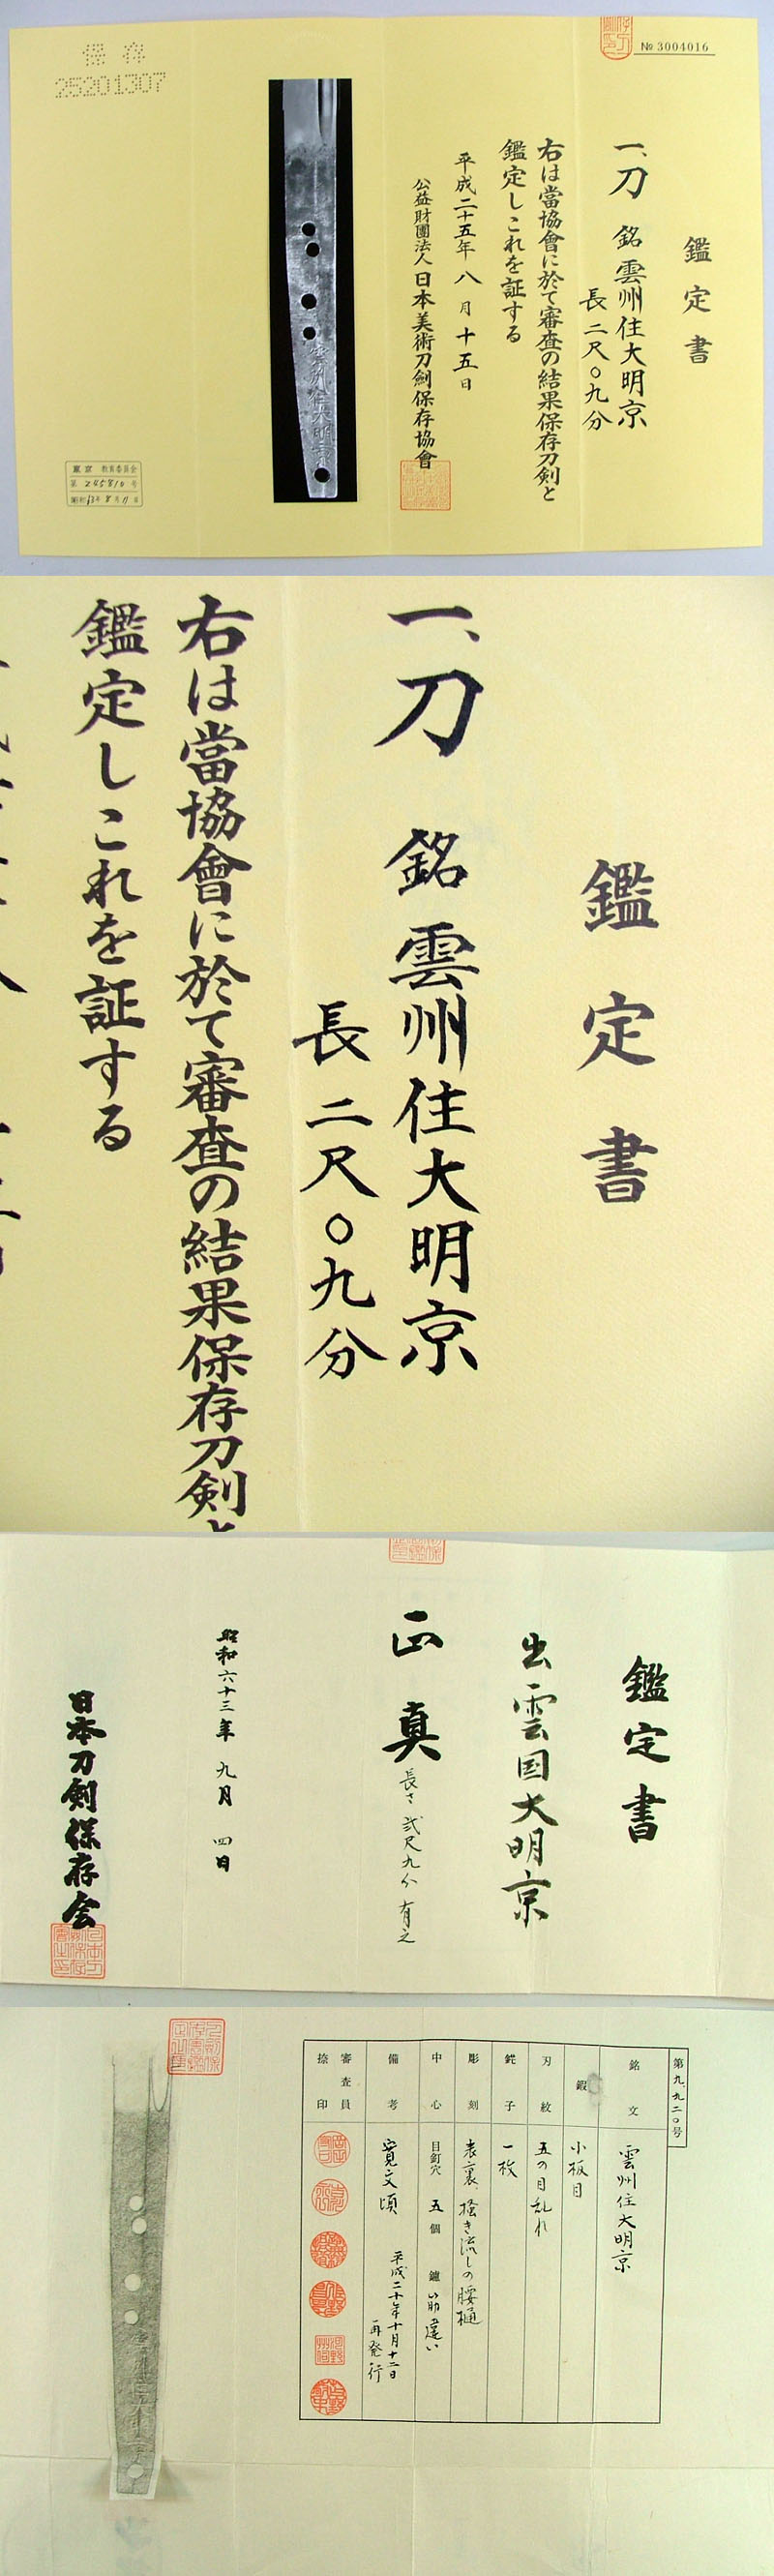 保存
25201307
№ 3004016
鑑定書
一、刀 銘 雲州住大明京
長二尺〇九分
右は當協會に於て審査の結果保存刀剣と
鑑定しこれを証する
平成二十五年八月十五日
公益財團法人日本美術刀劍保存協會
東京 教育委員会
第245810号
昭和43年8月11日
鑑定書
一、刀 銘 雲州住大明京
長二尺〇九分
右は當協會に於て審査の結果保存刀剣と
鑑定しこれを証する
鑑定書
出雲国大明京
正真
長さ弐尺九分有之
昭和六十三年九月四日
日本刀剣保存会
第九、九二〇号
銘文 雲州住大明京
鍛 小板目
刃紋 五の目乱れ
鋩子 一枚
彫刻 表裏、掻き流しの腰樋
中心 目釘穴 五個 鑢 筋違い
備考 寛文頃
平成二十年十月十二日
再発行
審査員
捺印